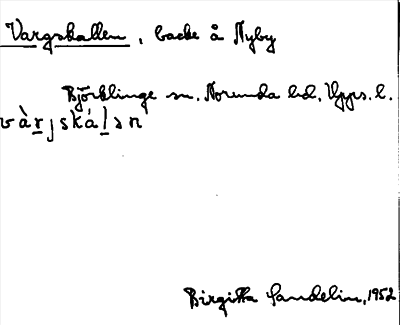 Vargskallen, backe å Nyby
Björklinge sn. Norunda hd. Upps. l.
vàrjskálən
Birgitta Sandelin, 1952